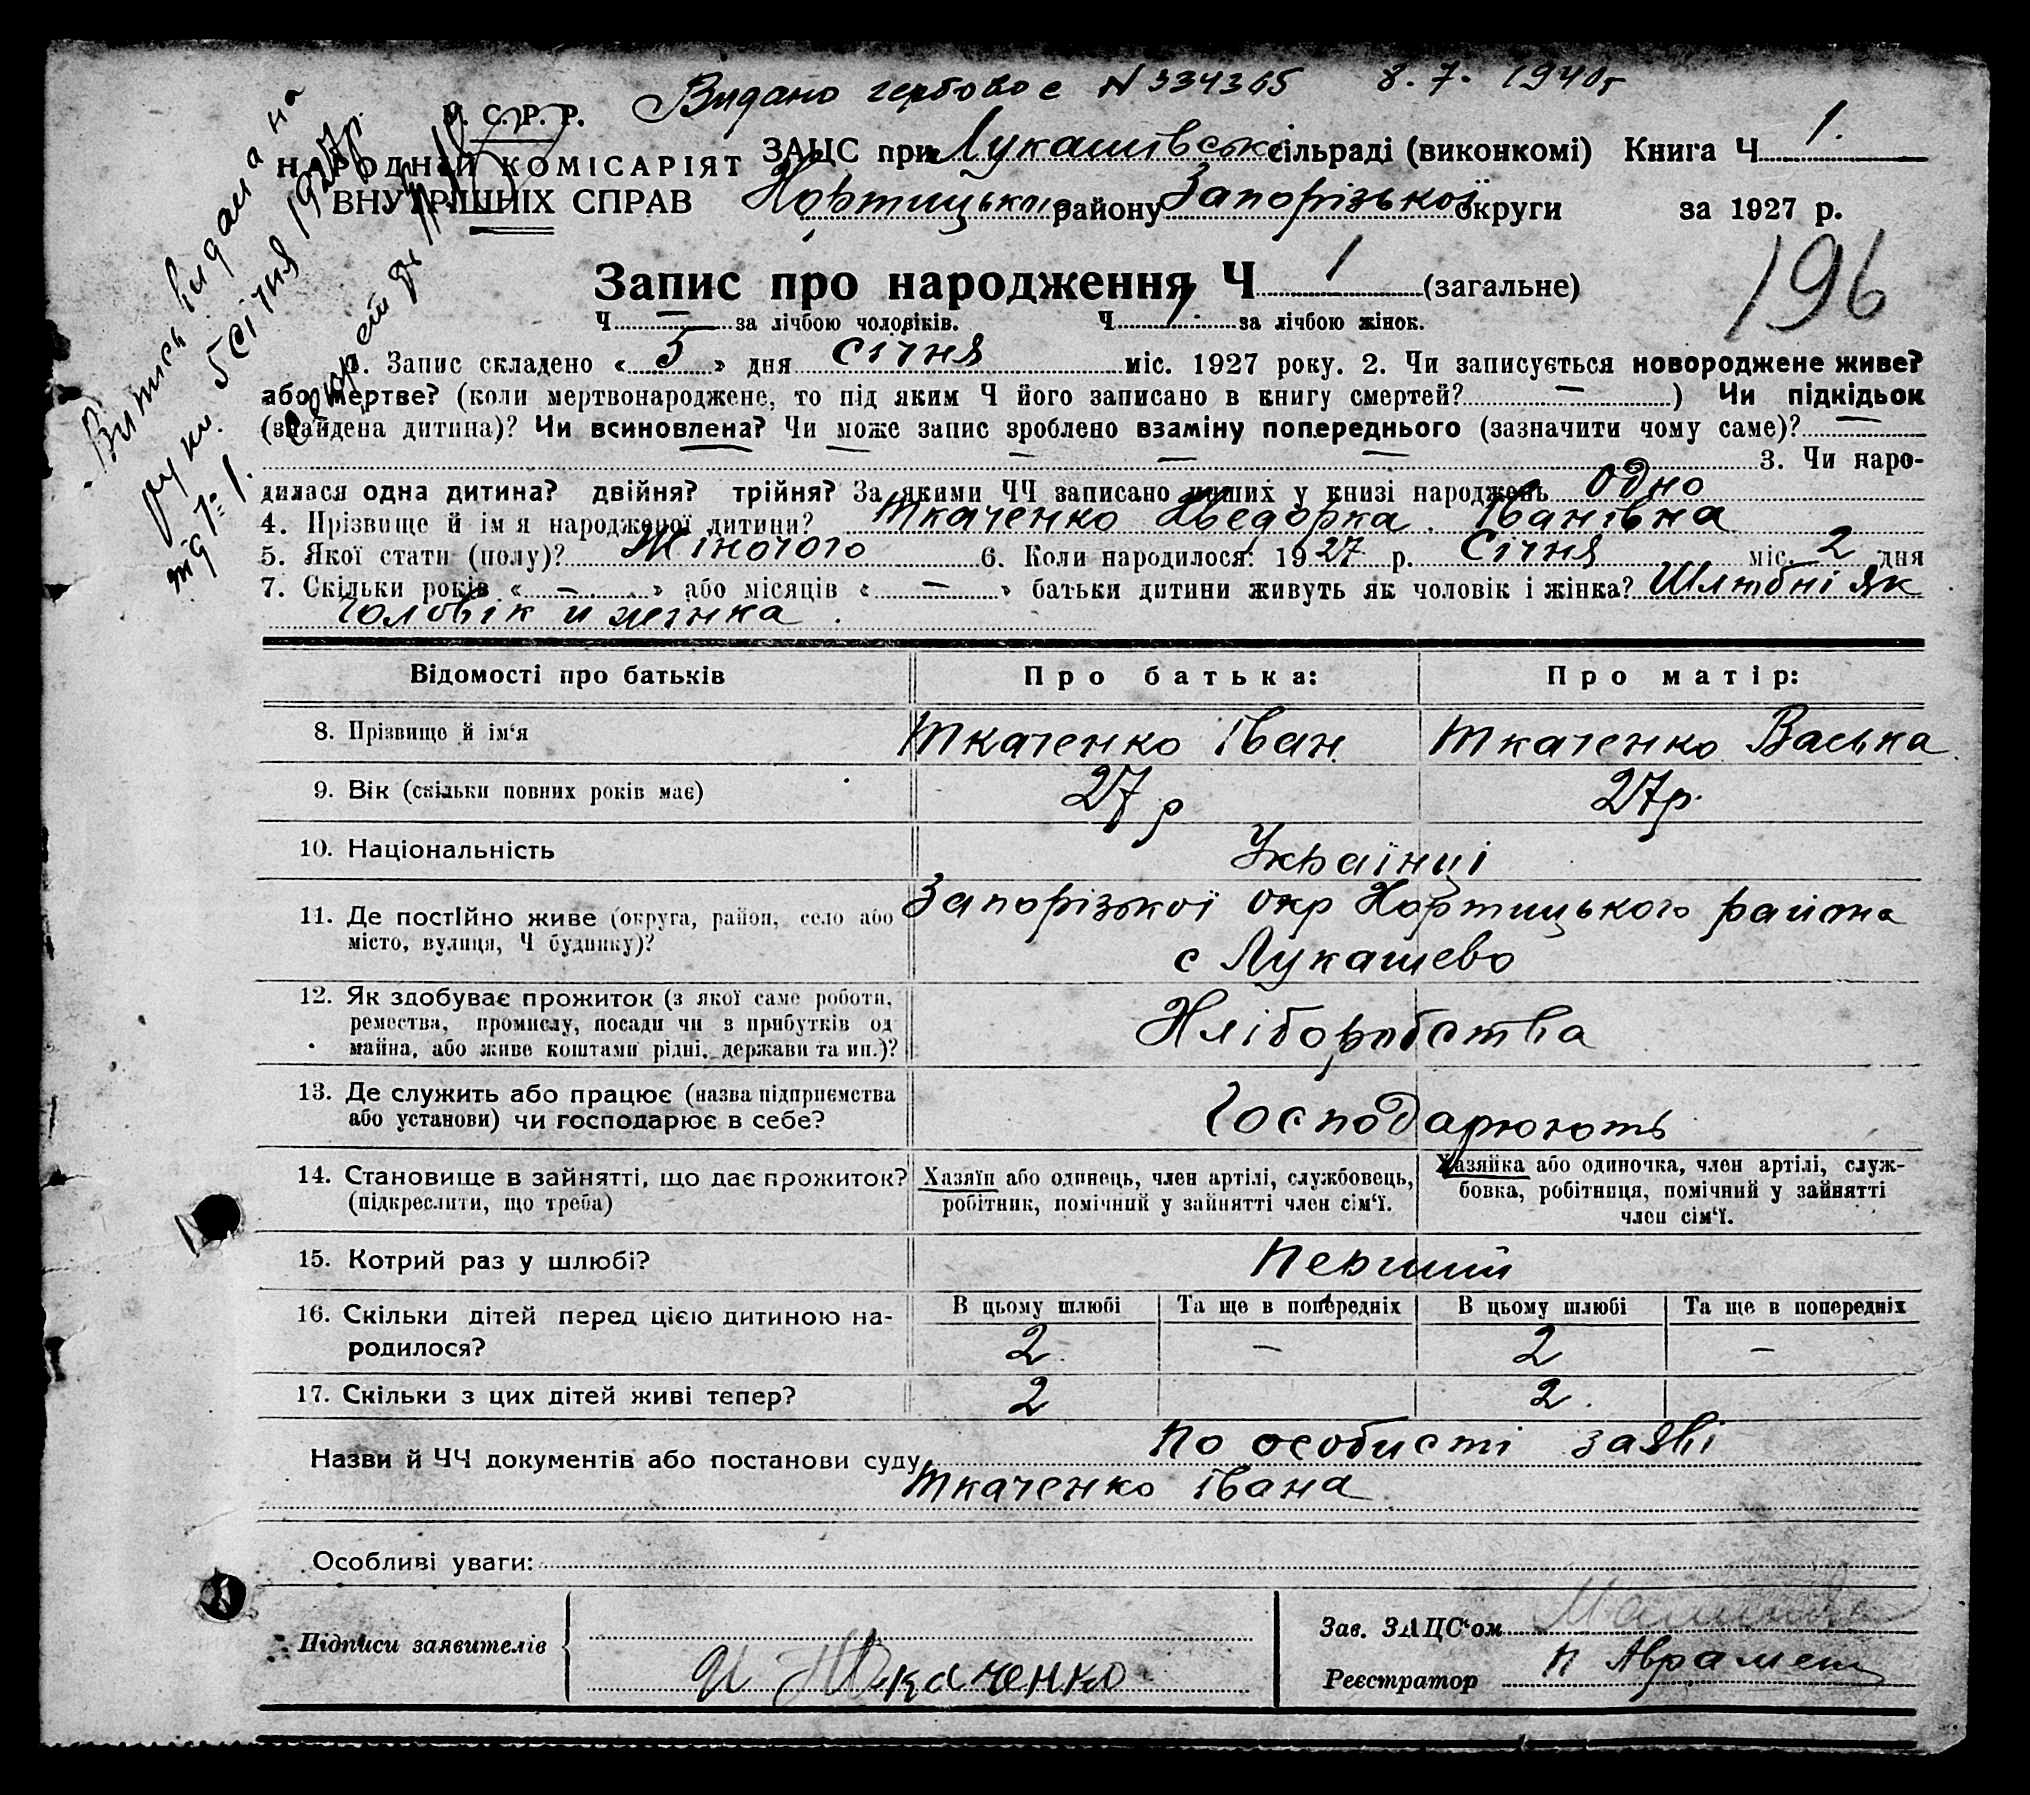 Видано гербове N 334365 8. 7. 1940г
У. С. Р. Р.
НАРОДНІЙ КОМІСАРІЯТ
ВНУТРІШНІХ СПРАВ
ЗАЦС при Лукашівськ. сільраді (виконкомі) Книга Ч 1.
Хортицьким району Запорізької округи за 1927 р.
Витись видана на
руки 5 січня 1927р.
під №: 1.
196
Запис про народження Ч 1 (загальне)
Ч — за лічбою чоловіків. Ч 1. за лічбою жінок.
1. Запис складено «5» дня Січня міс. 1927 року. 2. Чи записується новороджене живе?
або мертве? (коли мертвонароджене, то під яким Ч його записано в книгу смертей? — ) Чи підкідьок
(знайдена дитина)? Чи всиновлена? Чи може запис зроблено взаміну попереднього (зазначити чому саме)? —
— — — 3. Чи наро-
дилася одна дитина? двійня? трійня? За якими ЧЧ записано инших у книзі народжень одно
4. Прізвище й ім я народженої дитини? Ткаченко Хведорка Іванівна
5. Якої стати (полу)? Жіночого 6. Коли народилося: 1927 р. Січня міс. 2 дня
7. Скільки років « — » або місяців « — » батьки дитини живуть як чоловік і жінка? Шлюбні як
чоловік и жінка.
Відомості про батьків Про батька: Про матір:
8. Прізвище й ім‘я Ткаченко Іван Ткаченко Васька
9. Вік (скільки повних років має) 27 р 27р.
10. Національність Українці
11. Де постійно живе (округа, район, село або Запорізької окр Хортицького района
місто, вулиця, Ч будинку)? с Лукашево
12. Як здобуває прожиток (з якої саме роботи,
ремества, промислу, посади чи з прибутків од Хліборобства
майна, або живе коштами рідні, держави та ин.)?
13. Де служить або працює (назва підприємства
або установи) чи господарює в себе? Господарюють
14. Становище в зайнятті, що дає прожиток? Хазяїн або одинець, член артілі, службовець, Хазяйка або одиночка, член артілі, служ-
(підкреслити, що треба) робітник, помічний у зайнятті член сім‘ї. бовка, робітниця, помічний у зайнятті
член сім‘ї.
15. Котрий раз у шлюбі? Перший
16. Скільки дітей перед цією дитиною на- В цьому шлюбі Та ще в попередніх В цьому шлюбі Та ще в попередніх
родилося? 2 — 2 —
17. Скільки з цих дітей живі тепер? 2 2.
Назви й ЧЧ документів або постанови суду По особисті заяві
Ткаченко Івана
Особливі уваги:
Підписи заявителів И Ткаченко
Зав. ЗАЦС‘ом
Реєстратор П Аврамен